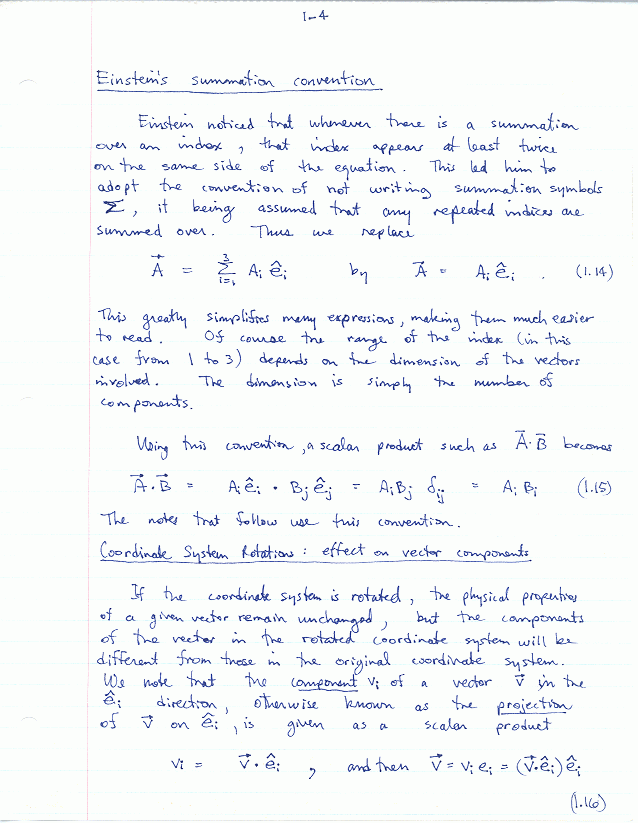 1-4
Einstein's summation convention
Einstein noticed that whenever there is a summation
over an index, that index appears at least twice
on the same side of the equation. This led him to
adopt the convention of not writing summation symbols
Σ, it being assumed that any repeated indices are
summed over. Thus we replace
A⃗ = Σ_{i=1}^{3} A_i ê_i by A⃗ = A_i ê_i . (1.14)
This greatly simplifies many expressions, making them much easier
to read. Of course the range of the index (in this
case from 1 to 3) depends on the dimension of the vectors
involved. The dimension is simply the number of
components.
Using this convention, a scalar product such as A⃗·B⃗ becomes
A⃗·B⃗ = A_i ê_i · B_j ê_j = A_i B_j δ_ij = A_i B_i (1.15)
The notes that follow use this convention.
Coordinate System Rotations: effect on vector components
If the coordinate system is rotated, the physical properties
of a given vector remain unchanged, but the components
of the vector in the rotated coordinate system will be
different from those in the original coordinate system.
We note that the component v_i of a vector v⃗ in the
ê_i direction, otherwise known as the projection
of v⃗ on ê_i, is given as a scalar product
v_i = v⃗·ê_i , and then v⃗ = v_i e_i = (v⃗·ê_i) ê_i
(1.16)